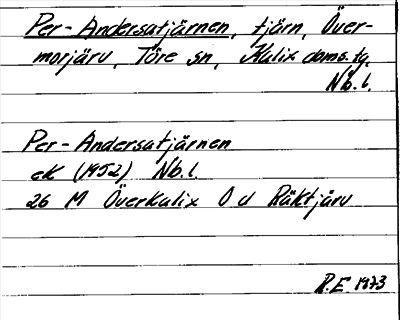 Per-Andersatjärnen, tjärn, Över-
morjärv, Töre sn, Kalix doms.tg,
Nb.l.
Per-Andersatjärnen
ek (1952) Nb.l.
26 M Överkalix O d Räktjärv
R.E 1973